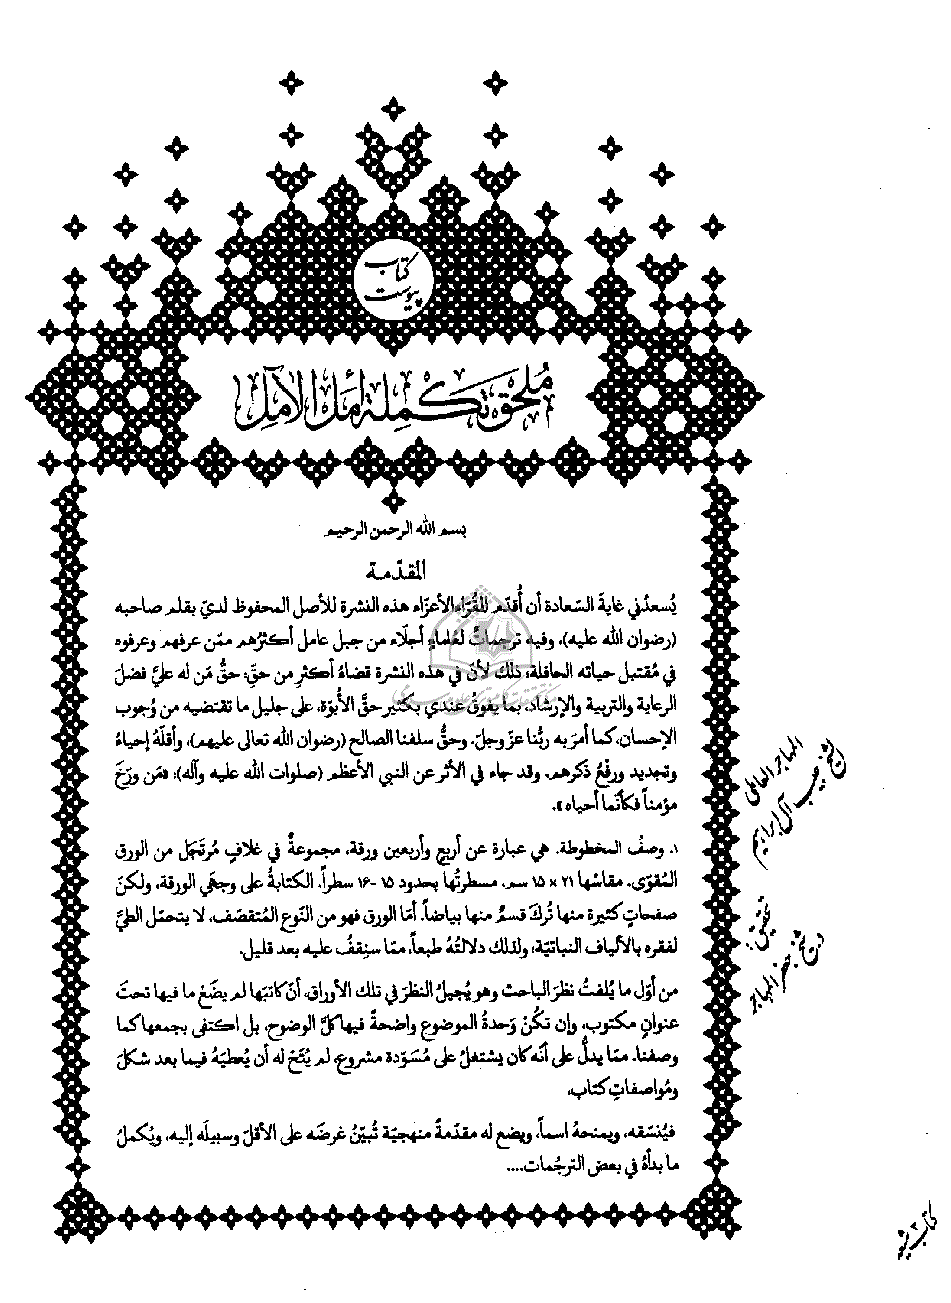 كتاب
پیوست
مُلحق تكملة أمل الآمل
بسم الله الرحمن الرحيم
المقدّمة
يُسعدُني غايةَ السّعادة أن أُقدّم للقُرّاء الأعزّاء هذه النشرة للأصل المحفوظ لديّ بقلم صاحبه
(رضوان الله عليه)، وفيه ترجماتٌ لعُلماءٍ أجلّاء من جبل عامل أكثرُهم ممّن عرفهم وعرفوه
في مُقتبل حياته الحافلة؛ ذلك لأنّ في هذه النشرة قضاءُ أكثرِ من حقّ: حقُّ مَن له عليَّ فضلَ
الرعاية والتربية والإرشاد، بما يفوقُ عندي بكثيرٍ حقَّ الأُبوّة، على جليل ما تقتضيه من وُجوب
الإحسان، كما أمر به ربُّنا عزّ وجلّ. وحقُّ سلفنا الصالح (رضوان الله تعالى عليهم)، وأقلّهُ إحياءُ
وتجديد ورفْعُ ذكرهم. وقد جاء في الأثر عن النبي الأعظم (صلوات الله عليه وآله): «مَن ورّخَ
مؤمناً فكأنّما أحياه».
١. وصفُ المخطوطة. هي عبارة عن أربعٍ وأربعين ورقة، مجموعةٌ في غلافٍ مُرتَجَل من الورق
المُقوّى. مقاسُها ٢١ × ١٥ سم. مسطرتُها بحدود ١٥-١٦ سطراً. الكتابةُ على وجهَي الورقة، ولكنّ
صفحاتٍ كثيرة منها تُركَ قسمٌ منها بياضاً. أمّا الورق فهو من النّوع المُتقصّف، لا يتحمّل الطيَّ
لفقره بالألياف النباتيّة، ولذلك دلالتُهُ طبعاً، ممّا سنقفُ عليه بعد قليل.
من أوّل ما يُلفتُ نظرَ الباحث وهو يُجيلُ النظرَ في تلك الأوراق، أنّ كاتبَها لم يضَعْ ما فيها تحتَ
عنوانٍ مكتوب، وإن تكُنْ وَحدةُ الموضوع واضحةً فيها كلَّ الوضوح، بل اكتفى بجمعها كما
وصفنا. ممّا يدلُّ على أنّه كان يشتغلُ على مُسَوّدة مشروع، لم يُتَحْ له أن يُعطيَهُ فيما بعد شكلَ
ومُواصفاتِ كتاب،
فيُنسّقه، ويمنحهُ اسماً، ويضع له مقدّمةً منهجيّة تُبيّنُ غرضَه على الأقلّ وسبيلَه إليه، ويُكملُ
ما بدأهُ في بعض الترجُمات....
المهاجر العاملي
الشيخ حبيب آل إبراهيم
تحقيق:
شیخ جعفر المهاجر
كتاب شيعه